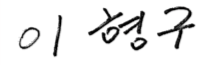 이 형구